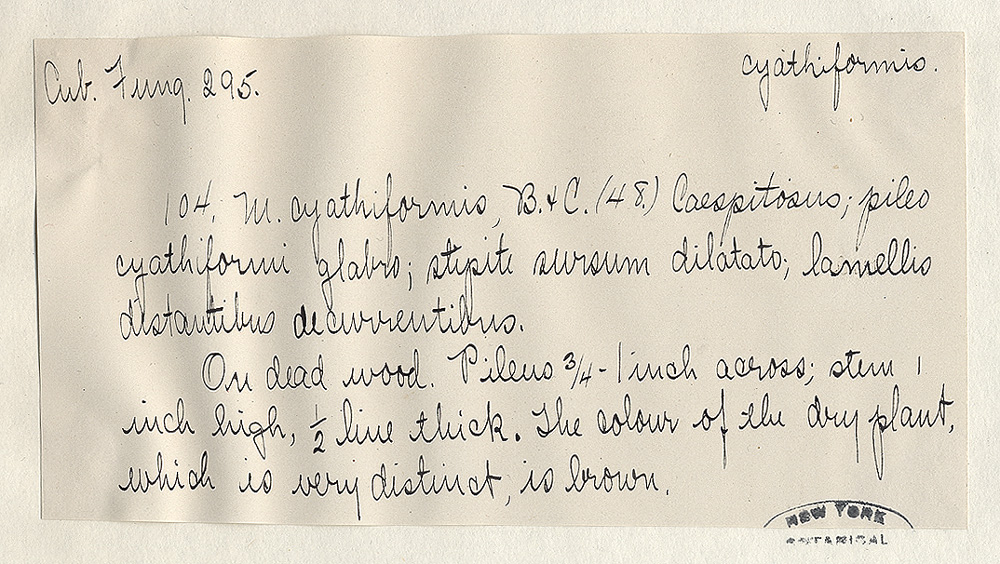 Cub. Fung. 295.
cyathiformis.
104. M. cyathiformis, B. & C. (48.) Caespitosus; pileo
cyathiformi glabro; stipite sursum dilatato; lamellis
distantibus decurrentibus.
On dead wood. Pileus 3/4 - 1 inch across; stem 1
inch high, 1/2 line thick. The colour of the dry plant,
which is very distinct, is brown.
NEW YORK
BOTANICAL